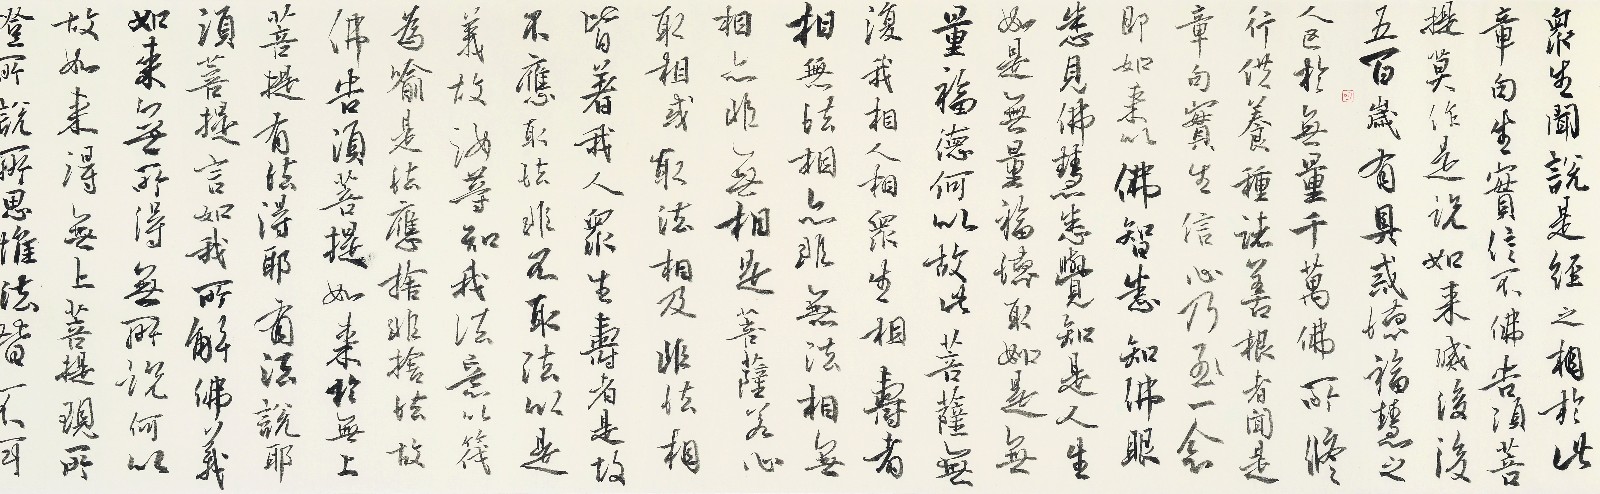 眾生聞說是經之相於此
章句生實信不佛告須菩
提莫作是說如来滅後後
五百歲有具戒德福慧之
人已於無量千萬佛所修
行供養種諸善根者聞是
章句實生信心乃至一念
即如来以佛智悉知佛眼
悉見佛慧悉覺知是人生
如是無量福德取如是無
量福德何以故此菩薩無
復我相人相眾生相壽者
相無法相亦非無法相無
相亦非無相是菩薩若心
取相或取法相及非法相
皆著我人眾生壽者是故
不應取法非不取法以是
義故汝等知我法意以筏
為喻是法應捨非捨法故
佛告須菩提如来於無上
菩提有法得耶有法說耶
須菩提言如我所解佛義
如来無所得無所說何以
故如来得無上菩提現所
證所說所思惟法皆不可